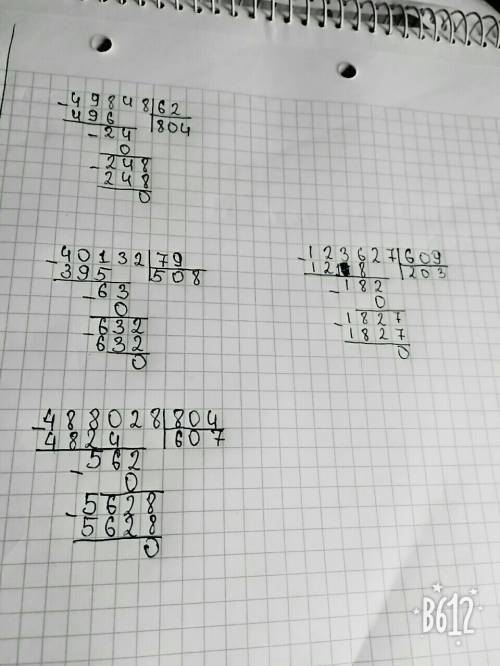 - 49848 | 62
496 | 804
- 24
0
- 248
248
0
- 40132 | 79
395 | 508
- 63
0
- 632
632
0
- 123627 | 609
1218 | 203
- 182
0
- 1827
1827
0
- 488028 | 804
4824 | 607
- 562
0
- 5628
5628
0
B612